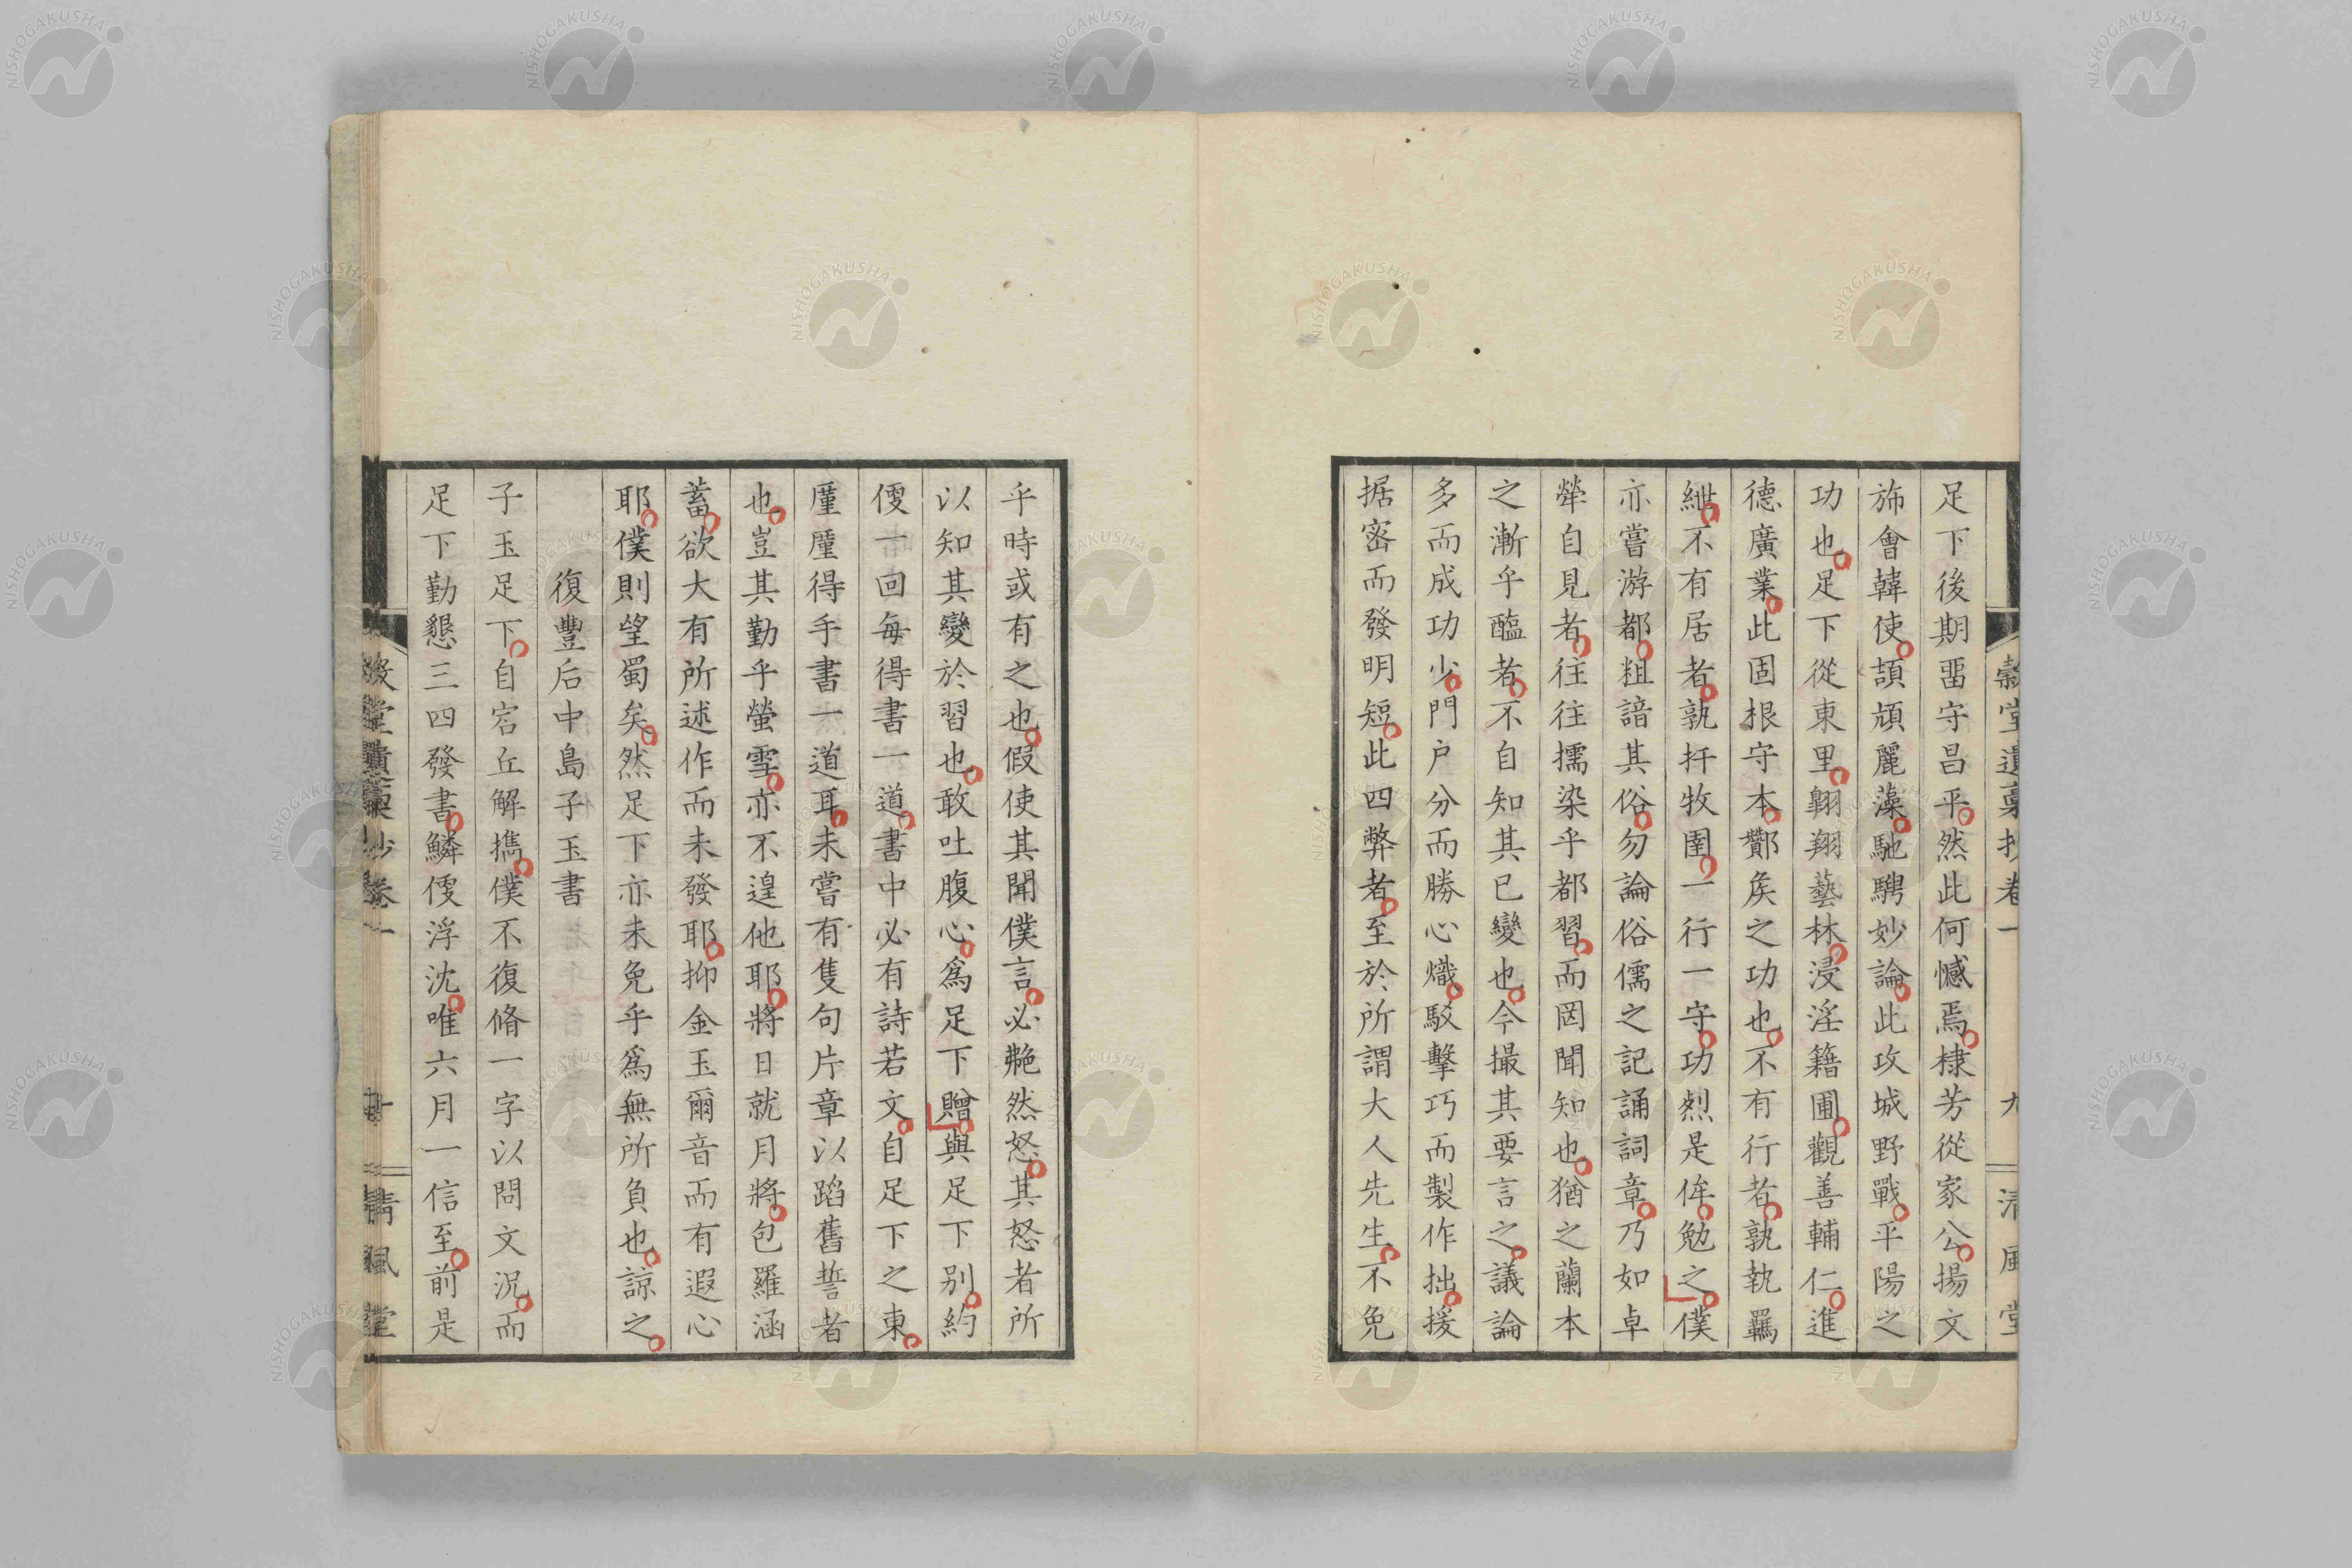 足下後期畱守昌平然此何憾焉棣芳從家公揚文
斾會韓使頡頏麗藻馳騁妙論此攻城野戰平陽之
功也足下從東里翺翔藝林浸淫籍圃觀善輔仁進
德廣業此固根守本酇矦之功也不有行者孰執羈
紲不有居者孰扞牧圉一行一守功烈是侔勉之僕
亦嘗游都粗諳其俗勿論俗儒之記誦詞章乃如卓
犖自見者往往擩染乎都習而罔聞知也猶之蘭本
之漸乎醢者不自知其已變也今撮其要言之議論
多而成功少門戶分而勝心熾駁擊巧而製作拙援
据密而發明短此四弊者至於所謂大人先生不免
乎時或有之也假使其聞僕言必艴然怒其怒者所
以知其變於習也敢吐腹心爲足下贈與足下別約
㑯一回每得書一道書中必有詩若文自足下之東
厪厪得手書一道耳未嘗有隻句片章以蹈舊誓者
也豈其勤乎螢雪亦不遑他耶將日就月將包羅涵
蓄欲大有所述作而未發耶抑金玉爾音而有遐心
耶僕則望蜀矣然足下亦未免乎爲無所負也諒之
復豐后中島子玉書
子玉足下自宕丘解攜僕不復脩一字以問文況而
足下勤懇三四發書鱗㑯浮沈唯六月一信至前是
穀堂遺稾抄卷一
九
清風堂
NISHOGAKUSHA